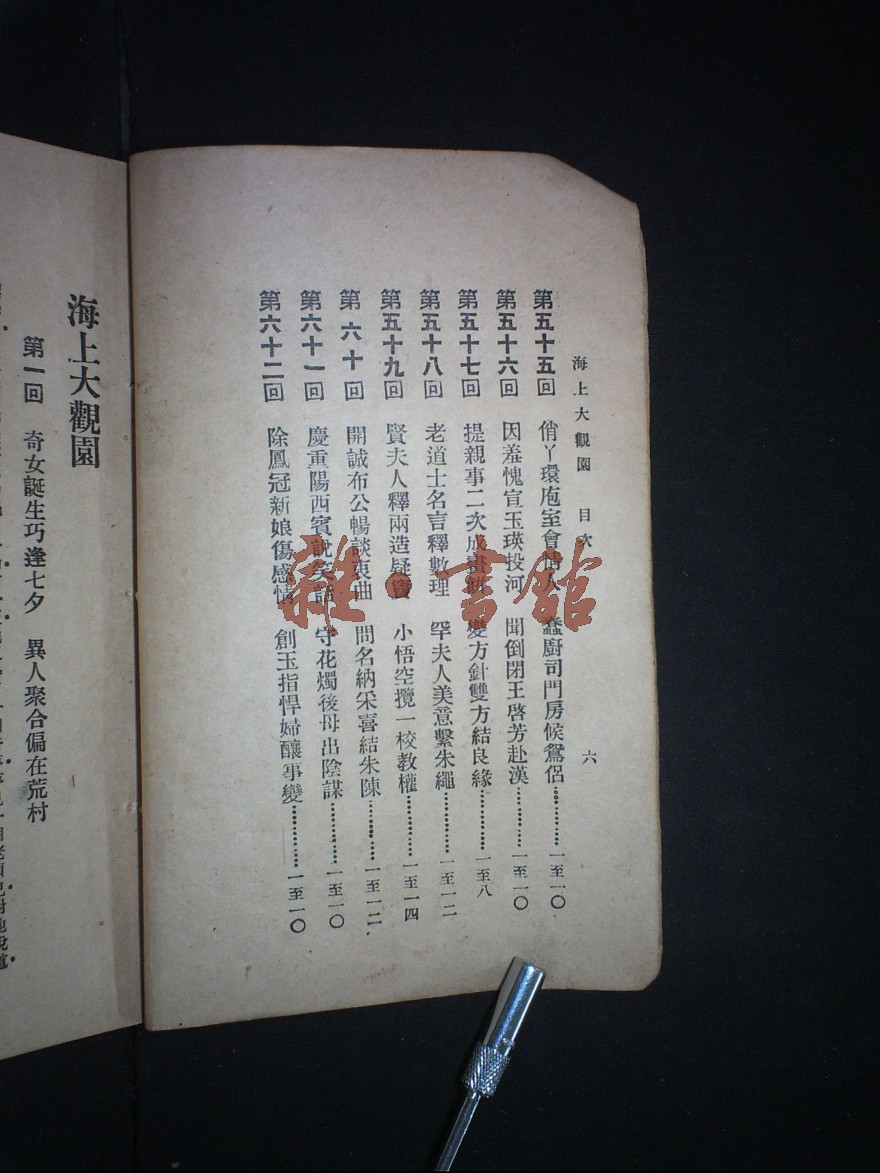 海上大觀園　目次　六
第五十五回　俏丫環庖室會情人　蠢廚司門房候鴛侶…………一至一〇
第五十六回　因羞愧宣玉瑛投河　聞倒閉王啓芳赴漢…………一至一〇
第五十七回　提親事二次成畫餅　變方針雙方結良緣…………一至八
第五十八回　老道士名言釋數理　罕夫人美意繫朱繩…………一至一二
第五十九回　賢夫人釋兩造疑竇　小悟空攬一校教權…………一至一四
第六十回　開誠布公暢談衷曲　問名納采喜結朱陳…………一至一二
第六十一回　慶重陽西賓說笑話　守花燭後母出陰謀…………一至一〇
第六十二回　除鳳冠新娘傷感情　創玉指悍婦釀事變…………一至一〇
海上大觀園
第一回　奇女誕生巧逢七夕　異人聚合偏在荒村
雜·書館